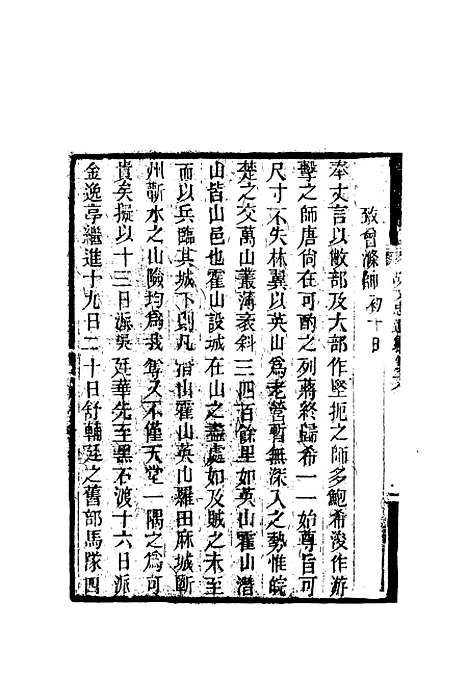 致曾滌帥初十日
奉丈言以敝部及大部作堅扼之師多鮑希浚作游
擊之師唐尙在可酌之列蔣終歸希一一始尊旨可
尺寸不失林翼以英山爲老營暫無深入之勢惟皖
楚之交萬山叢薄袤斜三四百餘里如英山霍山潛
山皆山邑也霍山設城在山之盡處如及賊之未至
而以兵臨其城下則凡潛山霍山英山羅田麻城蘄
州蘄水之山險均爲我奪久不僅天堂一隅之爲可
貴矣擬以十三日派吳廷華先至黑石渡十六日派
金逸亭繼進十九日二十日舒輔廷之舊部馬隊四